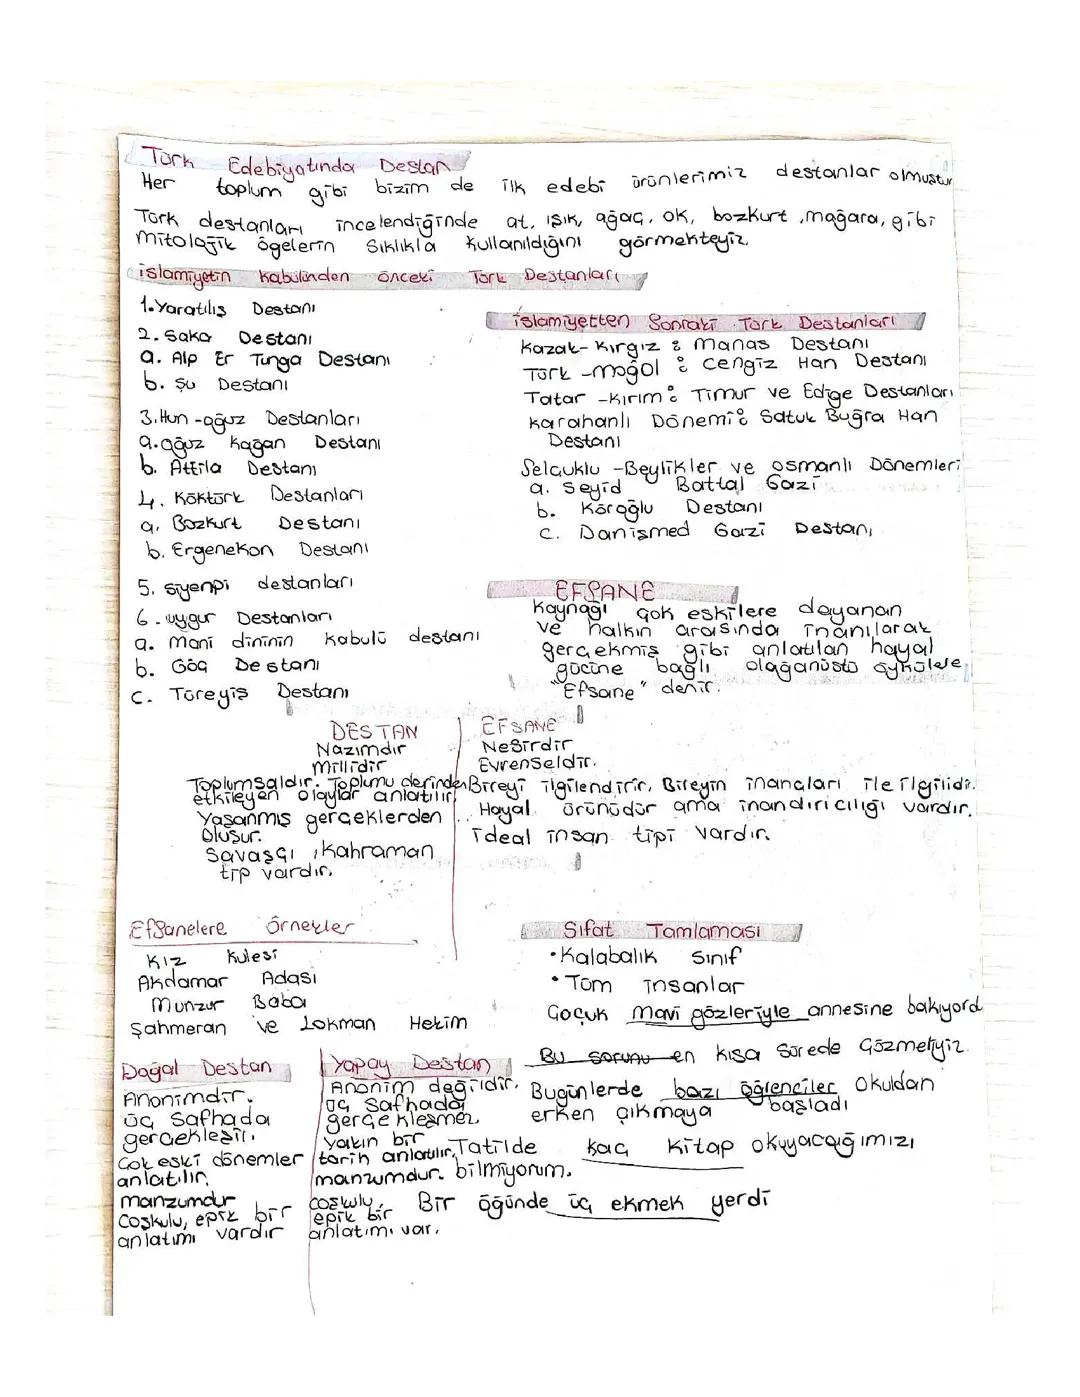 Türk Edebiyatında Destan
Her toplum gibi bizim de ilk edebi ürünlerimiz destanlar olmuştur
Türk destanları incelendiğinde at, ışık, ağaç, ok, bozkurt, mağara, gibi
mitolojik ögelerin sıklıkla kullanıldığını görmekteyiz.
İslamiyetin Kabulünden önceki Türk Destanları
1. Yaratılış Destanı
2. Saka Destanı
a. Alp Er Tunga Destanı
b. Şu Destanı
3. Hun-oğuz Destanları
a. oğuz kağan Destanı
b. Attila Destanı
4. Köktürk Destanları
a. Bozkurt Destanı
b. Ergenekon Destanı
5. siyenpi destanları
6. uygur Destanları
a. mani dininin kabulü destanı
b. Göç Destanı
c. Türeyiş Destanı
İslamiyetten Sonraki Türk Destanları
Kazak-Kırgız : manas Destanı
Türk-moğol : Cengiz Han Destanı
Tatar-Kırım : Timur ve Edige Destanları
karahanlı Dönemi : Satuk Buğra Han
Destanı
Selçuklu-Beylikler ve osmanlı Dönemleri
a. Seyid Battal Gazi
b. Köroğlu Destanı
c. Danişmed Gazi Destanı
EFSANE
Kaynağı çok eskilere dayanan
ve halkın arasında inanılarak
gerçekmiş gibi anlatılan hayal
gücüne bağlı olağanüstü öykülere
"Efsane" denir.
DESTAN
Nazımdır
Millidir
Toplumsaldır. Toplumu derinden
etkileyen olaylar anlatılır
Yaşanmış gerçeklerden
oluşur.
Savaşçı, kahraman
tip vardır.
EFSANE
Nesirdir
Evrenseldir.
Bireyi ilgilendirir. Bireyin inançları ile ilgilidir.
Hayal ürünüdür ama inandırıcılığı vardır.
ideal insan tipi vardır.
Efsanelere örnekler
Kız kulesi
Akdamar Adası
Munzur Baba
Şahmeran ve Lokman Hekim
Sıfat Tamlaması
• Kalabalık sınıf
• Tüm insanlar
Çocuk mavi gözleriyle annesine bakıyord
Bu sorunu en kısa sürede çözmeliyiz.
Bugünlerde bazı öğrenciler okuldan
erken çıkmaya başladı
Tatilde kaç kitap okuyacağımızı
bilmiyorum.
Bir öğünde üç ekmek yerdi
Doğal Destan
Anonimdir.
üç safhada
gerçekleşir.
Çok eski dönemler
anlatılır.
manzumdur
Coşkulu, epik bir
anlatımı vardır
Yapay Destan
Anonim değildir.
üç safhada
gerçekleşmez
yakın bir
tarih anlatılır.
manzumdur.
coşkulu,
epik bir
anlatımı var.